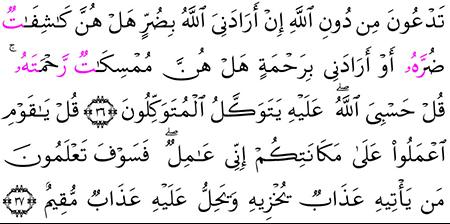 تَدْعُونَ مِن دُونِ ٱللَّهِ إِنْ أَرَادَنِىَ ٱللَّهُ بِضُرٍّ هَلْ هُنَّ كَـٰشِفَـٰتُ
ضُرِّهِۦٓ أَوْ أَرَادَنِى بِرَحْمَةٍ هَلْ هُنَّ مُمْسِكَـٰتُ رَحْمَتِهِۦ ۚ
قُلْ حَسْبِىَ ٱللَّهُ ۖ عَلَيْهِ يَتَوَكَّلُ ٱلْمُتَوَكِّلُونَ ﴿٣٦﴾ قُلْ يَـٰقَوْمِ
ٱعْمَلُوا۟ عَلَىٰ مَكَانَتِكُمْ إِنِّى عَـٰمِلٌ ۖ فَسَوْفَ تَعْلَمُونَ
مَن يَأْتِيهِ عَذَابٌ يُخْزِيهِ وَيَحِلُّ عَلَيْهِ عَذَابٌ مُّقِيمٌ ﴿٣٧﴾